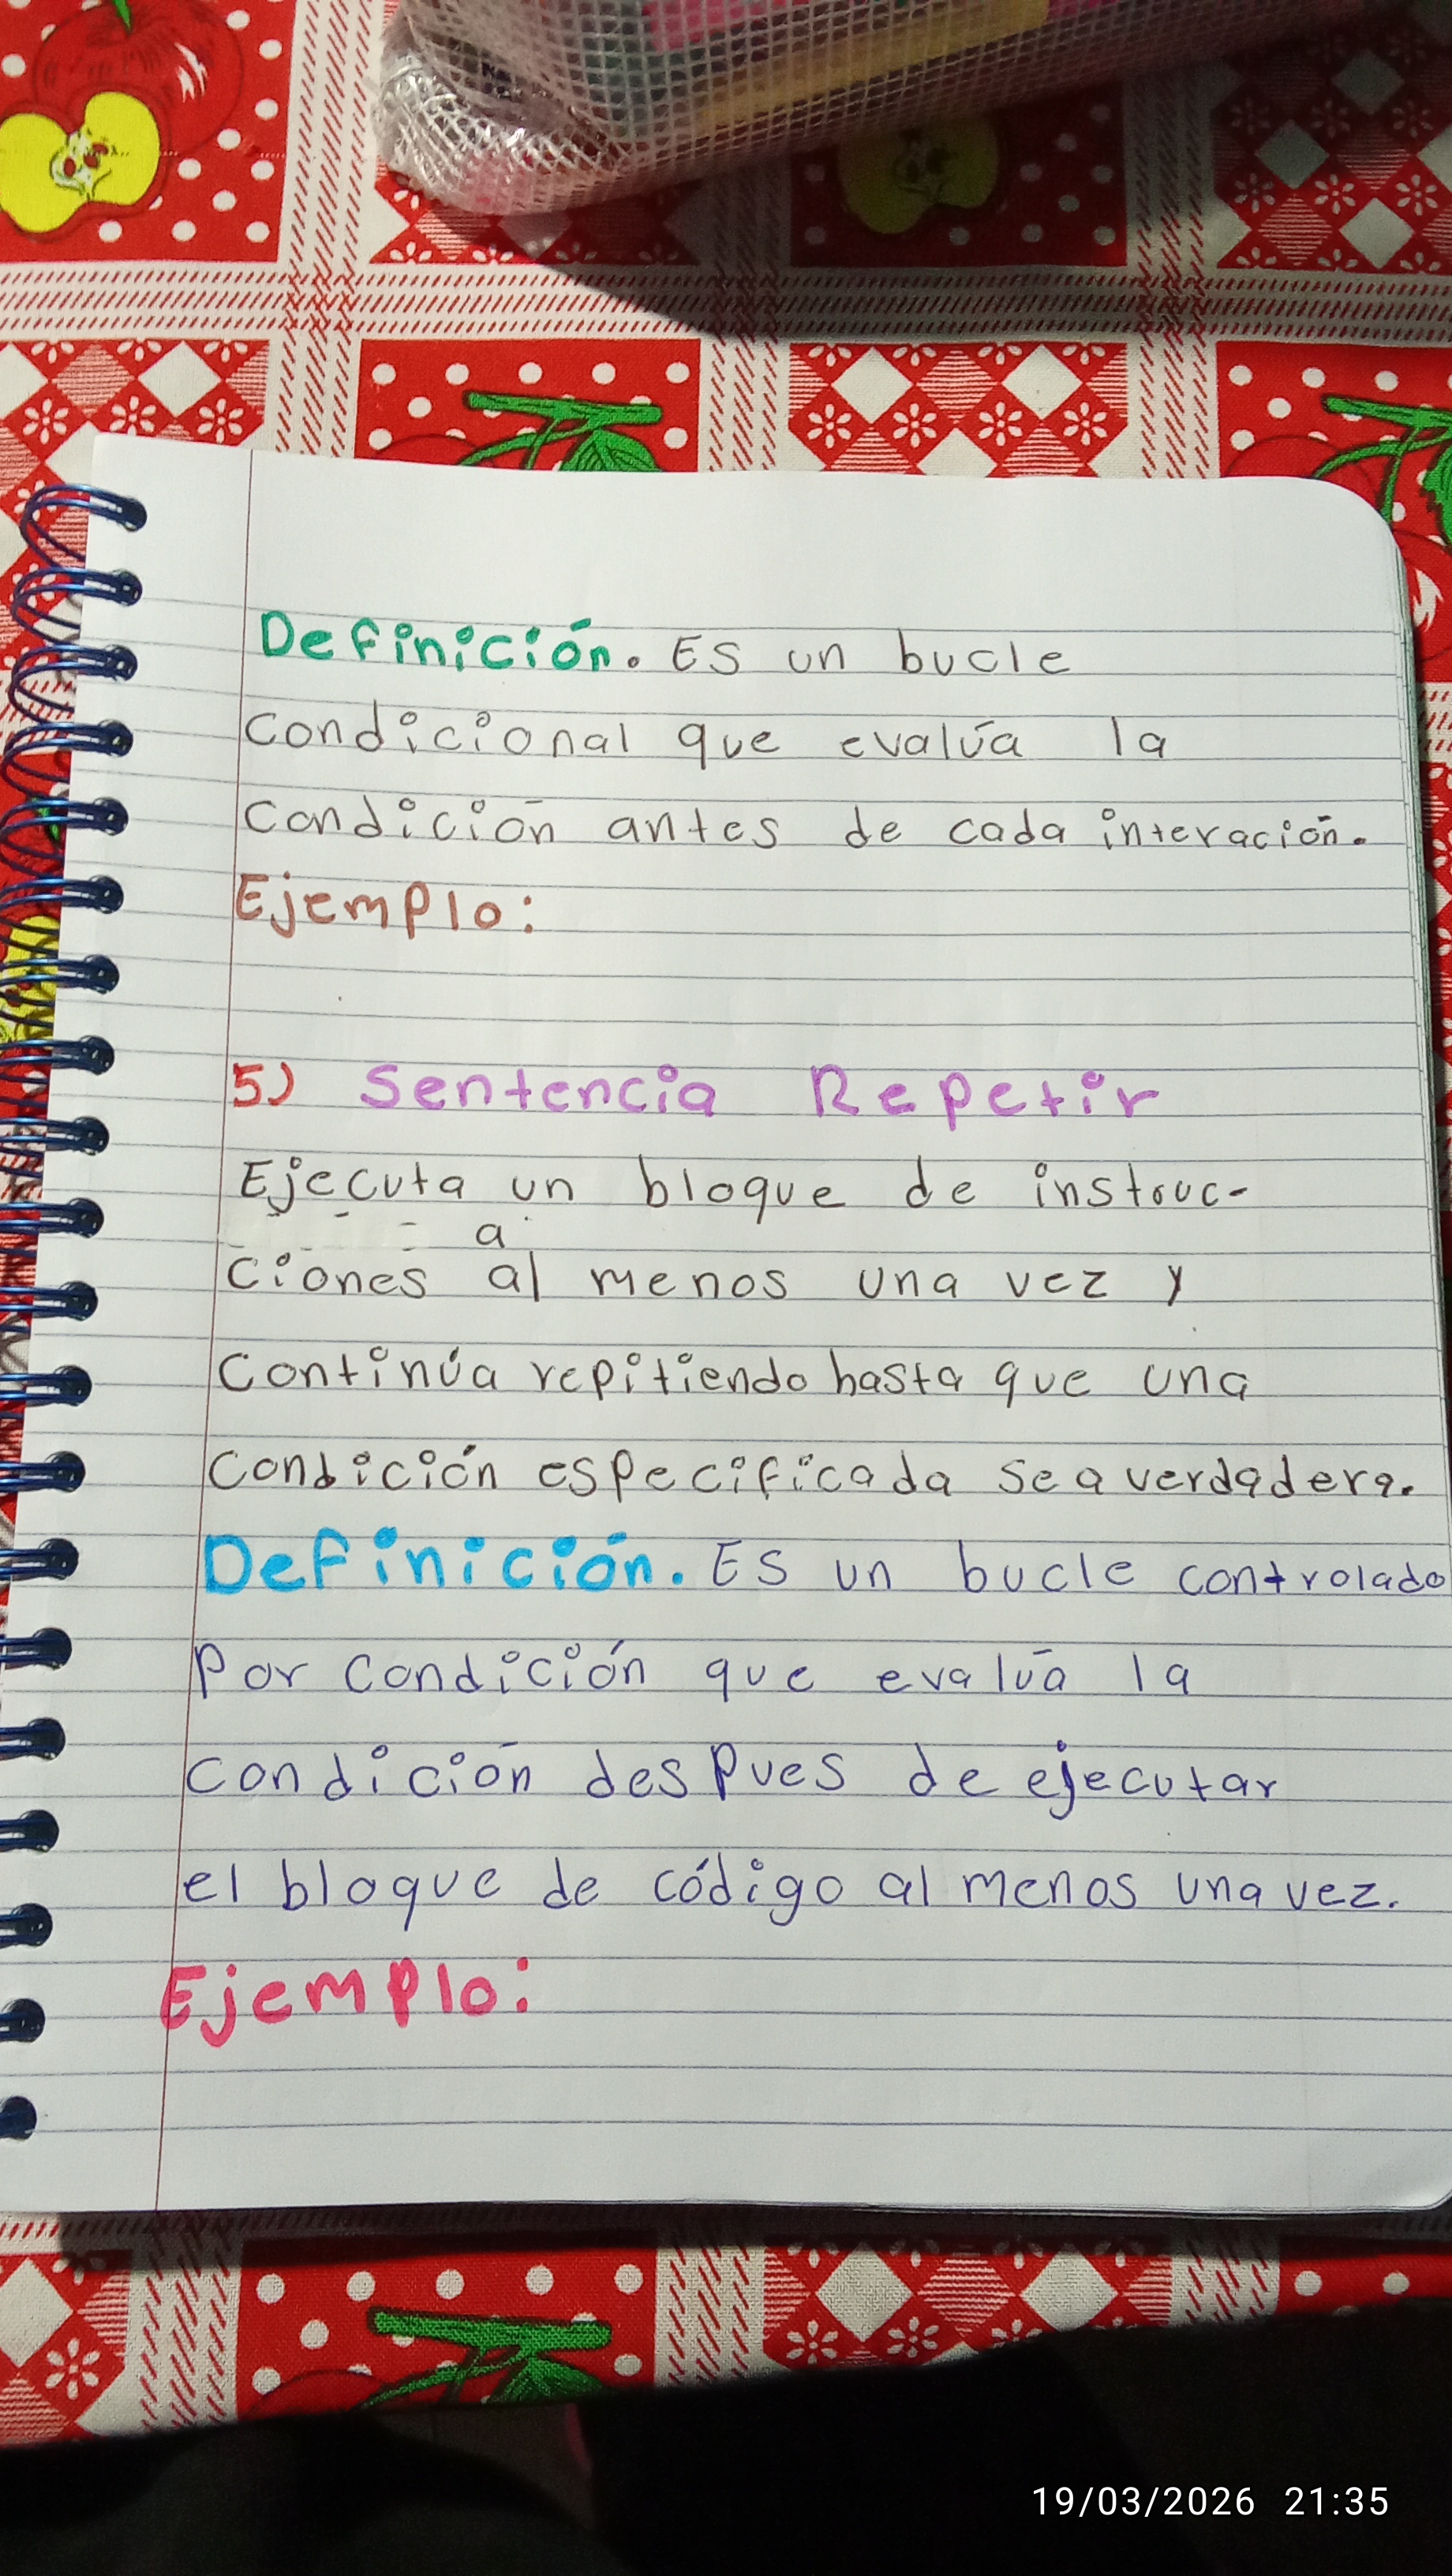 Definición. Es un bucle
condicional que evalúa la
condición antes de cada interación.
Ejemplo:
5) Sentencia Repetir
Ejecuta un bloque de instruc-
a
ciones al menos una vez y
continúa repitiendo hasta que una
condición especificada sea verdadera.
Definición. Es un bucle controlado
por condición que evalúa la
condición despues de ejecutar
el bloque de código al menos una vez.
Ejemplo:
19/03/2026 21:35